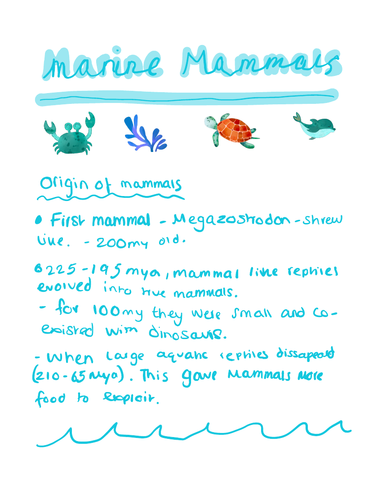 Marine Mammals
Origin of mammals
• First mammal - Megazostrodon - shrew
like. - 200my old.
• 225-195mya, mammal like reptiles
evolved into true mammals.
- for 100my they were small and co-
existed with dinosaurs.
- When large aquatic reptiles dissapeard
(210-65mya). This gave mammals more
food to exploit.